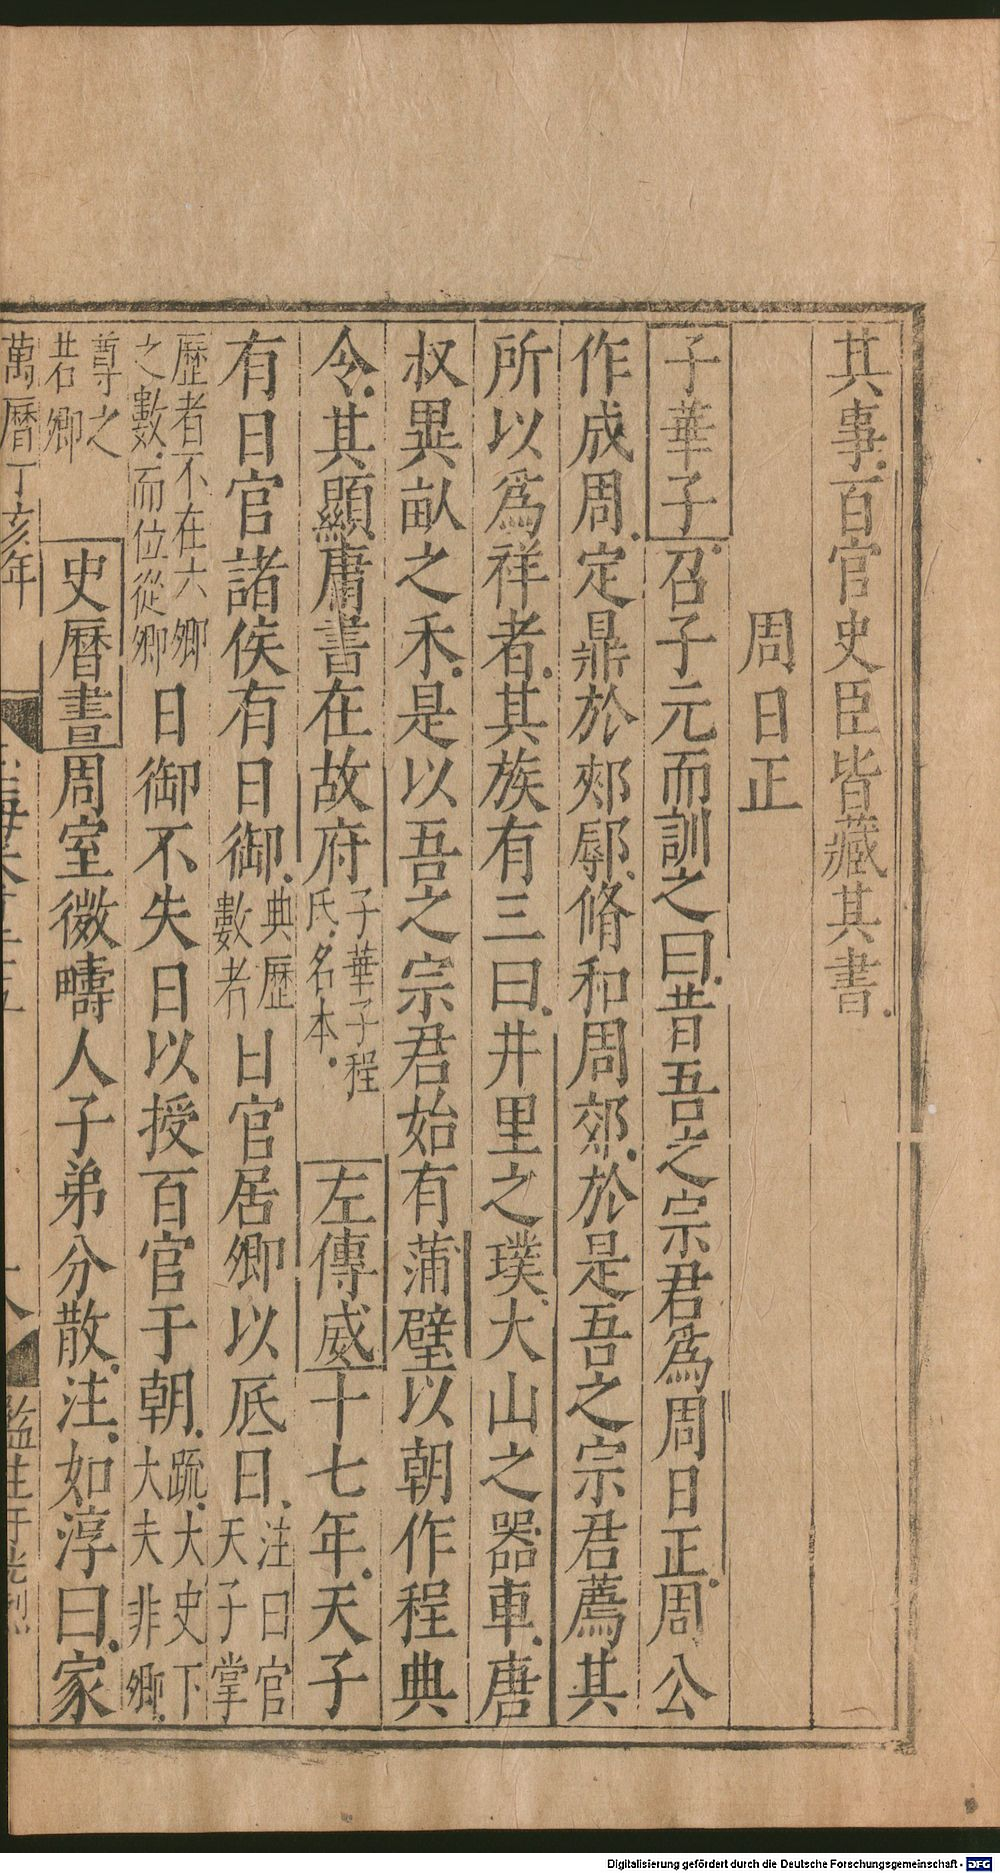 其事百官史臣皆藏其書
周日正
子華子召子元而訓之曰昔吾之宗君為周日正周公
作成周定鼎於郟鄏脩和周郊於是吾之宗君薦其
所以為祥者其族有三曰井里之璞大山之器車唐
叔異畝之禾是以吾之宗君始有蒲璧以朝作程典
令其顯庸書在故府子華子程氏名本左傳威十七年天子
有日官諸侯有日御典歷數者日官居卿以厎日注曰官天子掌
歷者不在六卿之數而位從卿日御不失日以授百官于朝疏大史下大夫非卿
尊之若卿史曆書周室微疇人子弟分散注如淳曰家
萬曆丁亥年
Digitalisierung gefördert durch die Deutsche Forschungsgemeinschaft - DFG